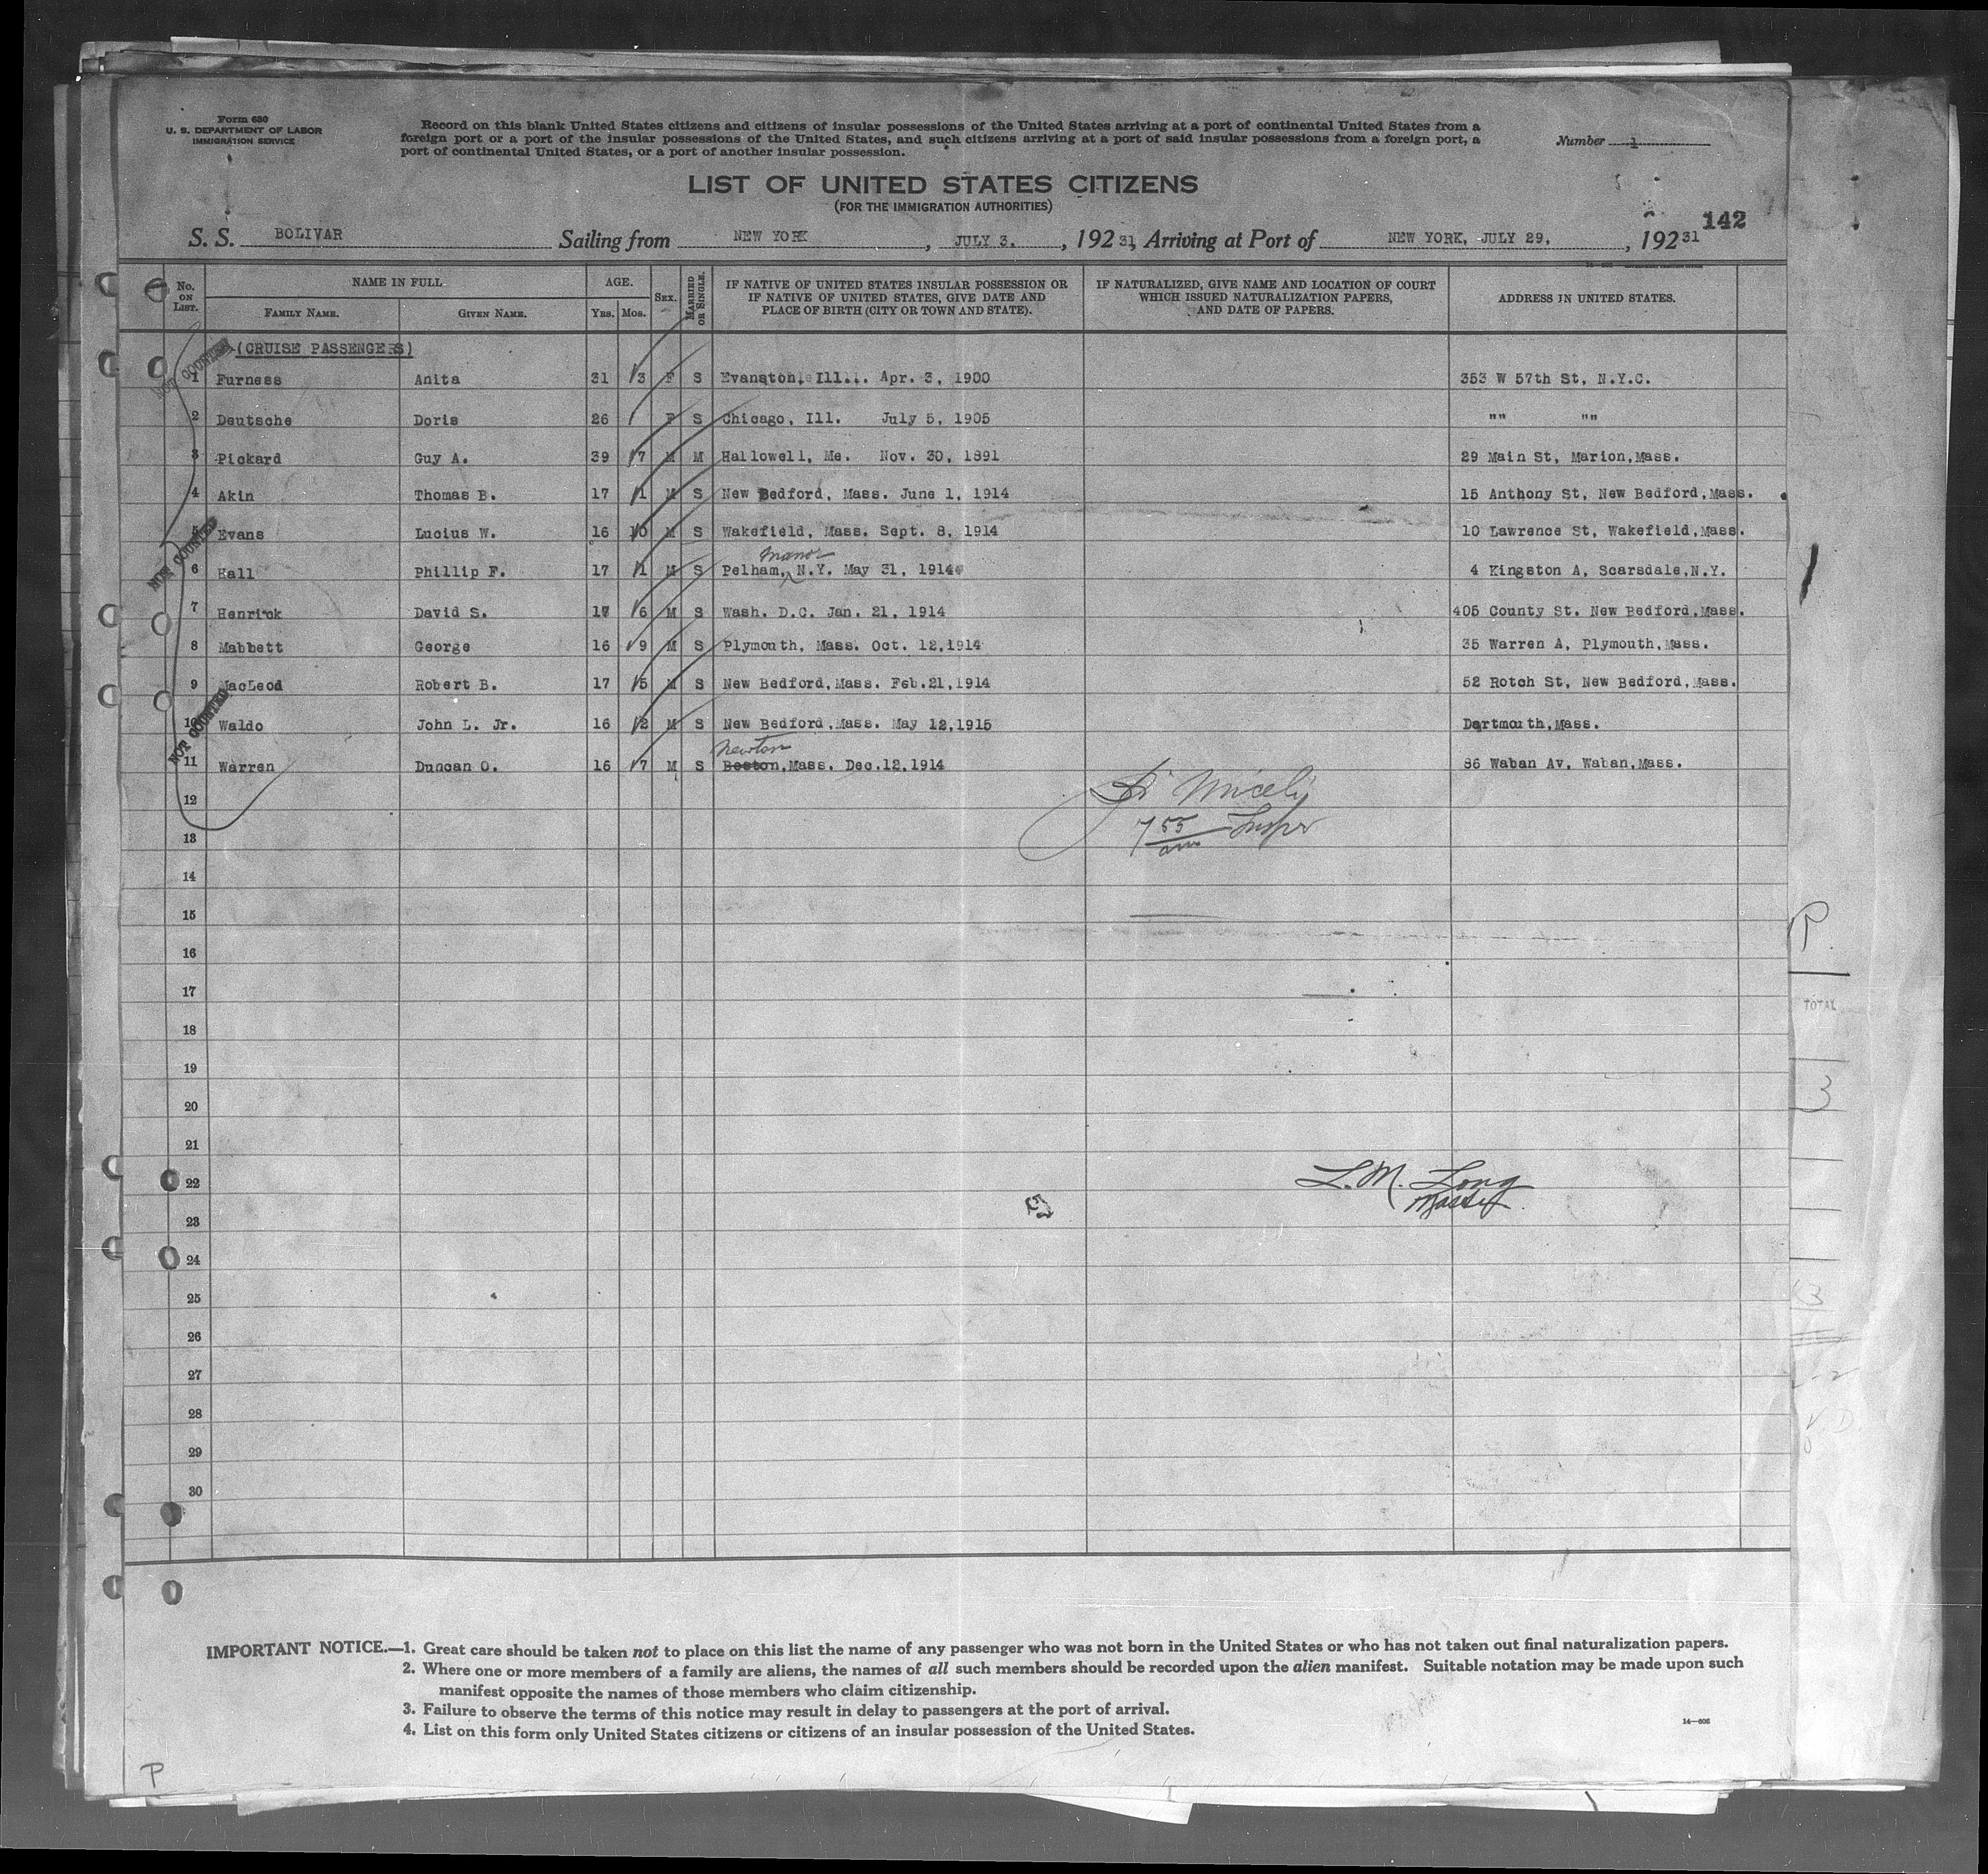 Form 630
U. S. DEPARTMENT OF LABOR
IMMIGRATION SERVICE
Record on this blank United States citizens and citizens of insular possessions of the United States arriving at a port of continental United States from a
foreign port or a port of the insular possessions of the United States, and such citizens arriving at a port of said insular possessions from a foreign port, a
port of continental United States, or a port of another insular possession.
Number 1
LIST OF UNITED STATES CITIZENS
(FOR THE IMMIGRATION AUTHORITIES)
142
S. S. BOLIVAR Sailing from NEW YORK, JULY 3, 192 31, Arriving at Port of NEW YORK, JULY 29, , 192 31
No. ON LIST. NAME IN FULL FAMILY NAME. GIVEN NAME. AGE. YRS. MOS. SEX. MARRIED OR SINGLE. IF NATIVE OF UNITED STATES INSULAR POSSESSION OR IF NATIVE OF UNITED STATES, GIVE DATE AND PLACE OF BIRTH (CITY OR TOWN AND STATE). IF NATURALIZED, GIVE NAME AND LOCATION OF COURT WHICH ISSUED NATURALIZATION PAPERS, AND DATE OF PAPERS. ADDRESS IN UNITED STATES.
NOT COUNTED
(CRUISE PASSENGERS)
1 Furness Anita 31 3 F S Evanston, Ill. Apr. 3, 1900 353 W 57th St, N.Y.C.
2 Deutsche Doris 26 F S Chicago, Ill. July 5, 1905 "" ""
3 Pickard Guy A. 39 7 M M Hallowell, Me. Nov. 30, 1891 29 Main St, Marion,Mass.
4 Akin Thomas B. 17 1 M S New Bedford, Mass. June 1, 1914 15 Anthony St, New Bedford,Mass.
NOT COUNTED
5 Evans Lucius W. 16 10 M S Wakefield, Mass. Sept. 8, 1914 10 Lawrence St, Wakefield,Mass.
Manor
6 Hall Phillip F. 17 1 M S Pelham, N.Y. May 31, 1914 4 Kingston A, Scarsdale,N.Y.
7 Henrick David S. 17 6 M S Wash. D.C. Jan. 21, 1914 405 County St. New Bedford,Mass.
8 Mabbett George 16 9 M S Plymouth, Mass. Oct. 12,1914 35 Warren A, Plymouth,Mass.
9 MacLeod Robert B. 17 5 M S New Bedford,Mass. Feb.21,1914 52 Rotch St, New Bedford,Mass.
NOT COUNTED
10 Waldo John L. Jr. 16 2 M S New Bedford,Mass. May 12,1915 Dartmouth,Mass.
Newton
11 Warren Duncan O. 16 7 M S Boston,Mass. Dec.12,1914 86 Waban Av, Waban,Mass.
12
Miceli
13
7 55 am Inspr
14
15
16
17
TOTAL
18
19
3
20
21
22
L. M. Long
Master
23
24
25
3
26
27
28
29
30
IMPORTANT NOTICE.—1. Great care should be taken not to place on this list the name of any passenger who was not born in the United States or who has not taken out final naturalization papers.
2. Where one or more members of a family are aliens, the names of all such members should be recorded upon the alien manifest. Suitable notation may be made upon such
manifest opposite the names of those members who claim citizenship.
3. Failure to observe the terms of this notice may result in delay to passengers at the port of arrival.
4. List on this form only United States citizens or citizens of an insular possession of the United States.
14—606
P